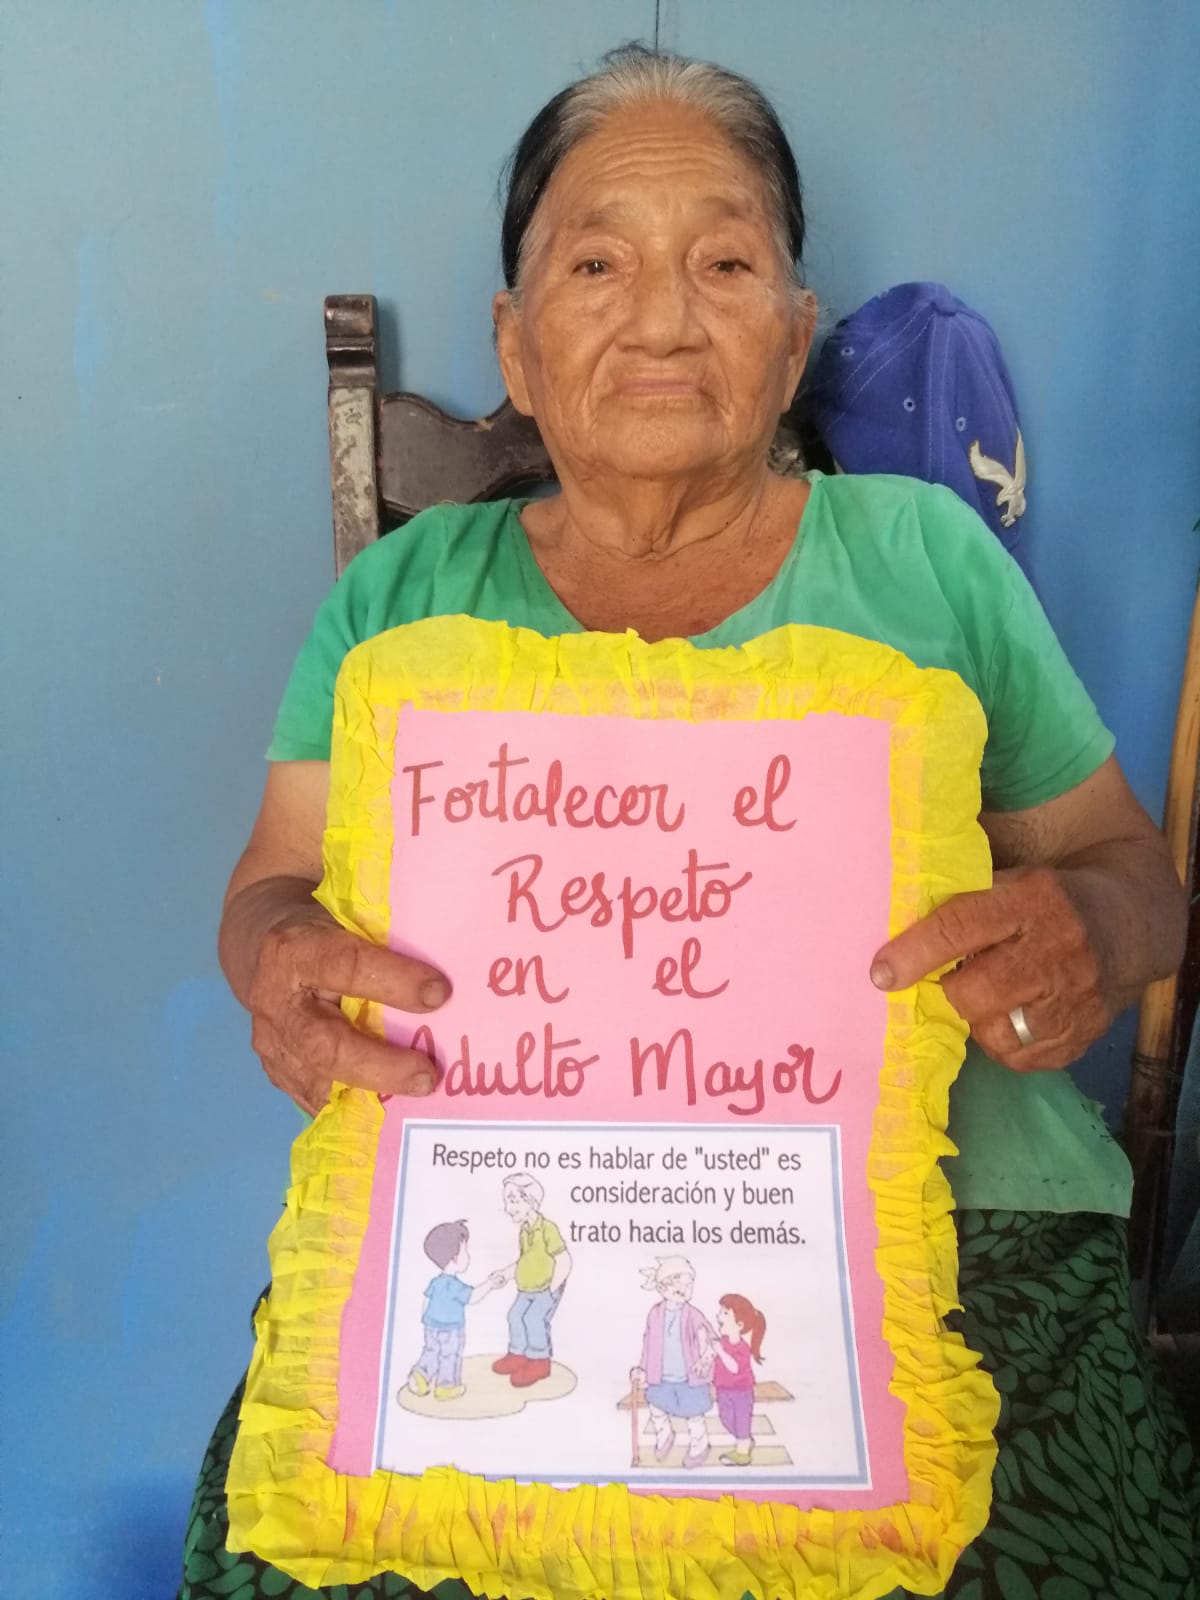 Fortalecer el
Respeto
en el
Adulto Mayor
Respeto no es hablar de "usted" es
consideración y buen
trato hacia los demás.